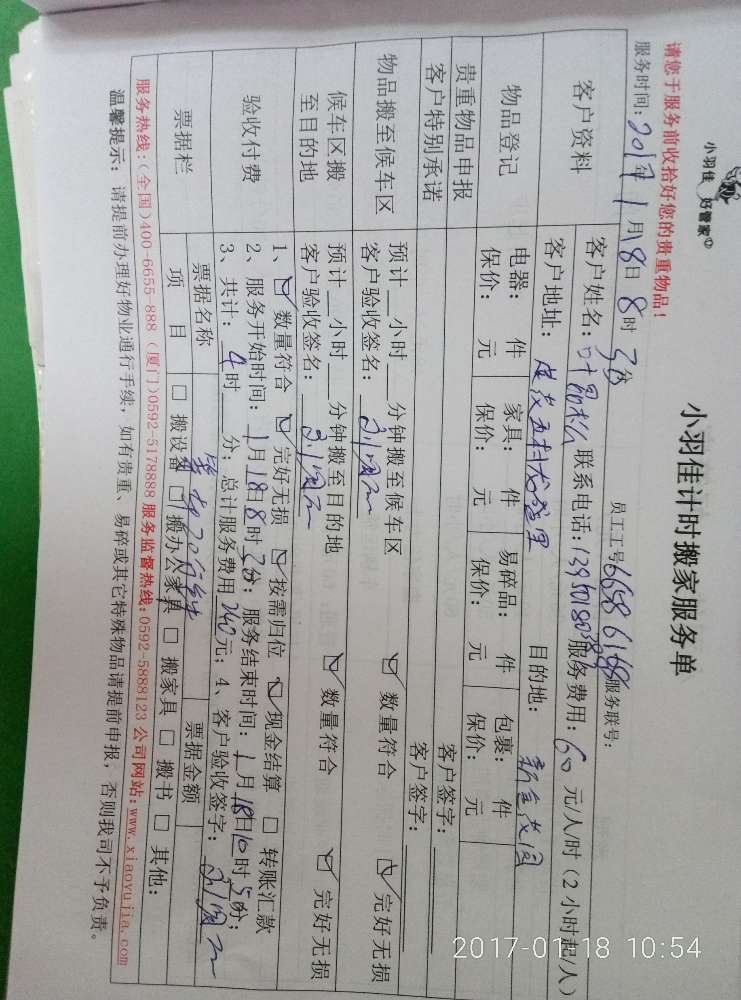 小羽佳 好管家
小羽佳计时搬家服务单
请您于服务前收拾好您的贵重物品!
员工工号 服务联号:
服务时间: 2017年 1月18日 8时 分
客户资料
客户姓名: 联系电话: 服务费用: 60 元/人/时 (2小时起/人)
客户地址: 目的地:
物品登记
电器: 件 家具: 件 易碎品: 件 包裹: 件
保价: 元 保价: 元 保价: 元 保价: 元
贵重物品申报 客户签字:
客户特别承诺 客户签字:
物品搬至候车区
预计 小时 分钟搬至候车区 数量符合 完好无损
客户验收签名:
候车区搬至目的地
预计 小时 分钟搬至目的地 数量符合 完好无损
客户验收签名:
验收付费
1、 数量符合 完好无损 按需归位 现金结算 转账汇款
2、服务开始时间: 1月18日8时 分; 服务结束时间: 1月18日10时 分;
3、共计: 4时 分; 总计服务费用 240元; 4、客户验收签字:
票据栏
票据名称 票据金额
项目 搬设备 搬办公家具 搬家具 搬书 其他:
服务热线:(全国)400-6655-888 (厦门)0592-5178888 服务监督热线:0592-5888123 公司网站:www.xiaoyujia.com
温馨提示: 请提前办理好物业通行手续, 如有贵重、易碎或其它特殊物品请提前申报, 否则我司不予负责。
2017-01-18 10:54